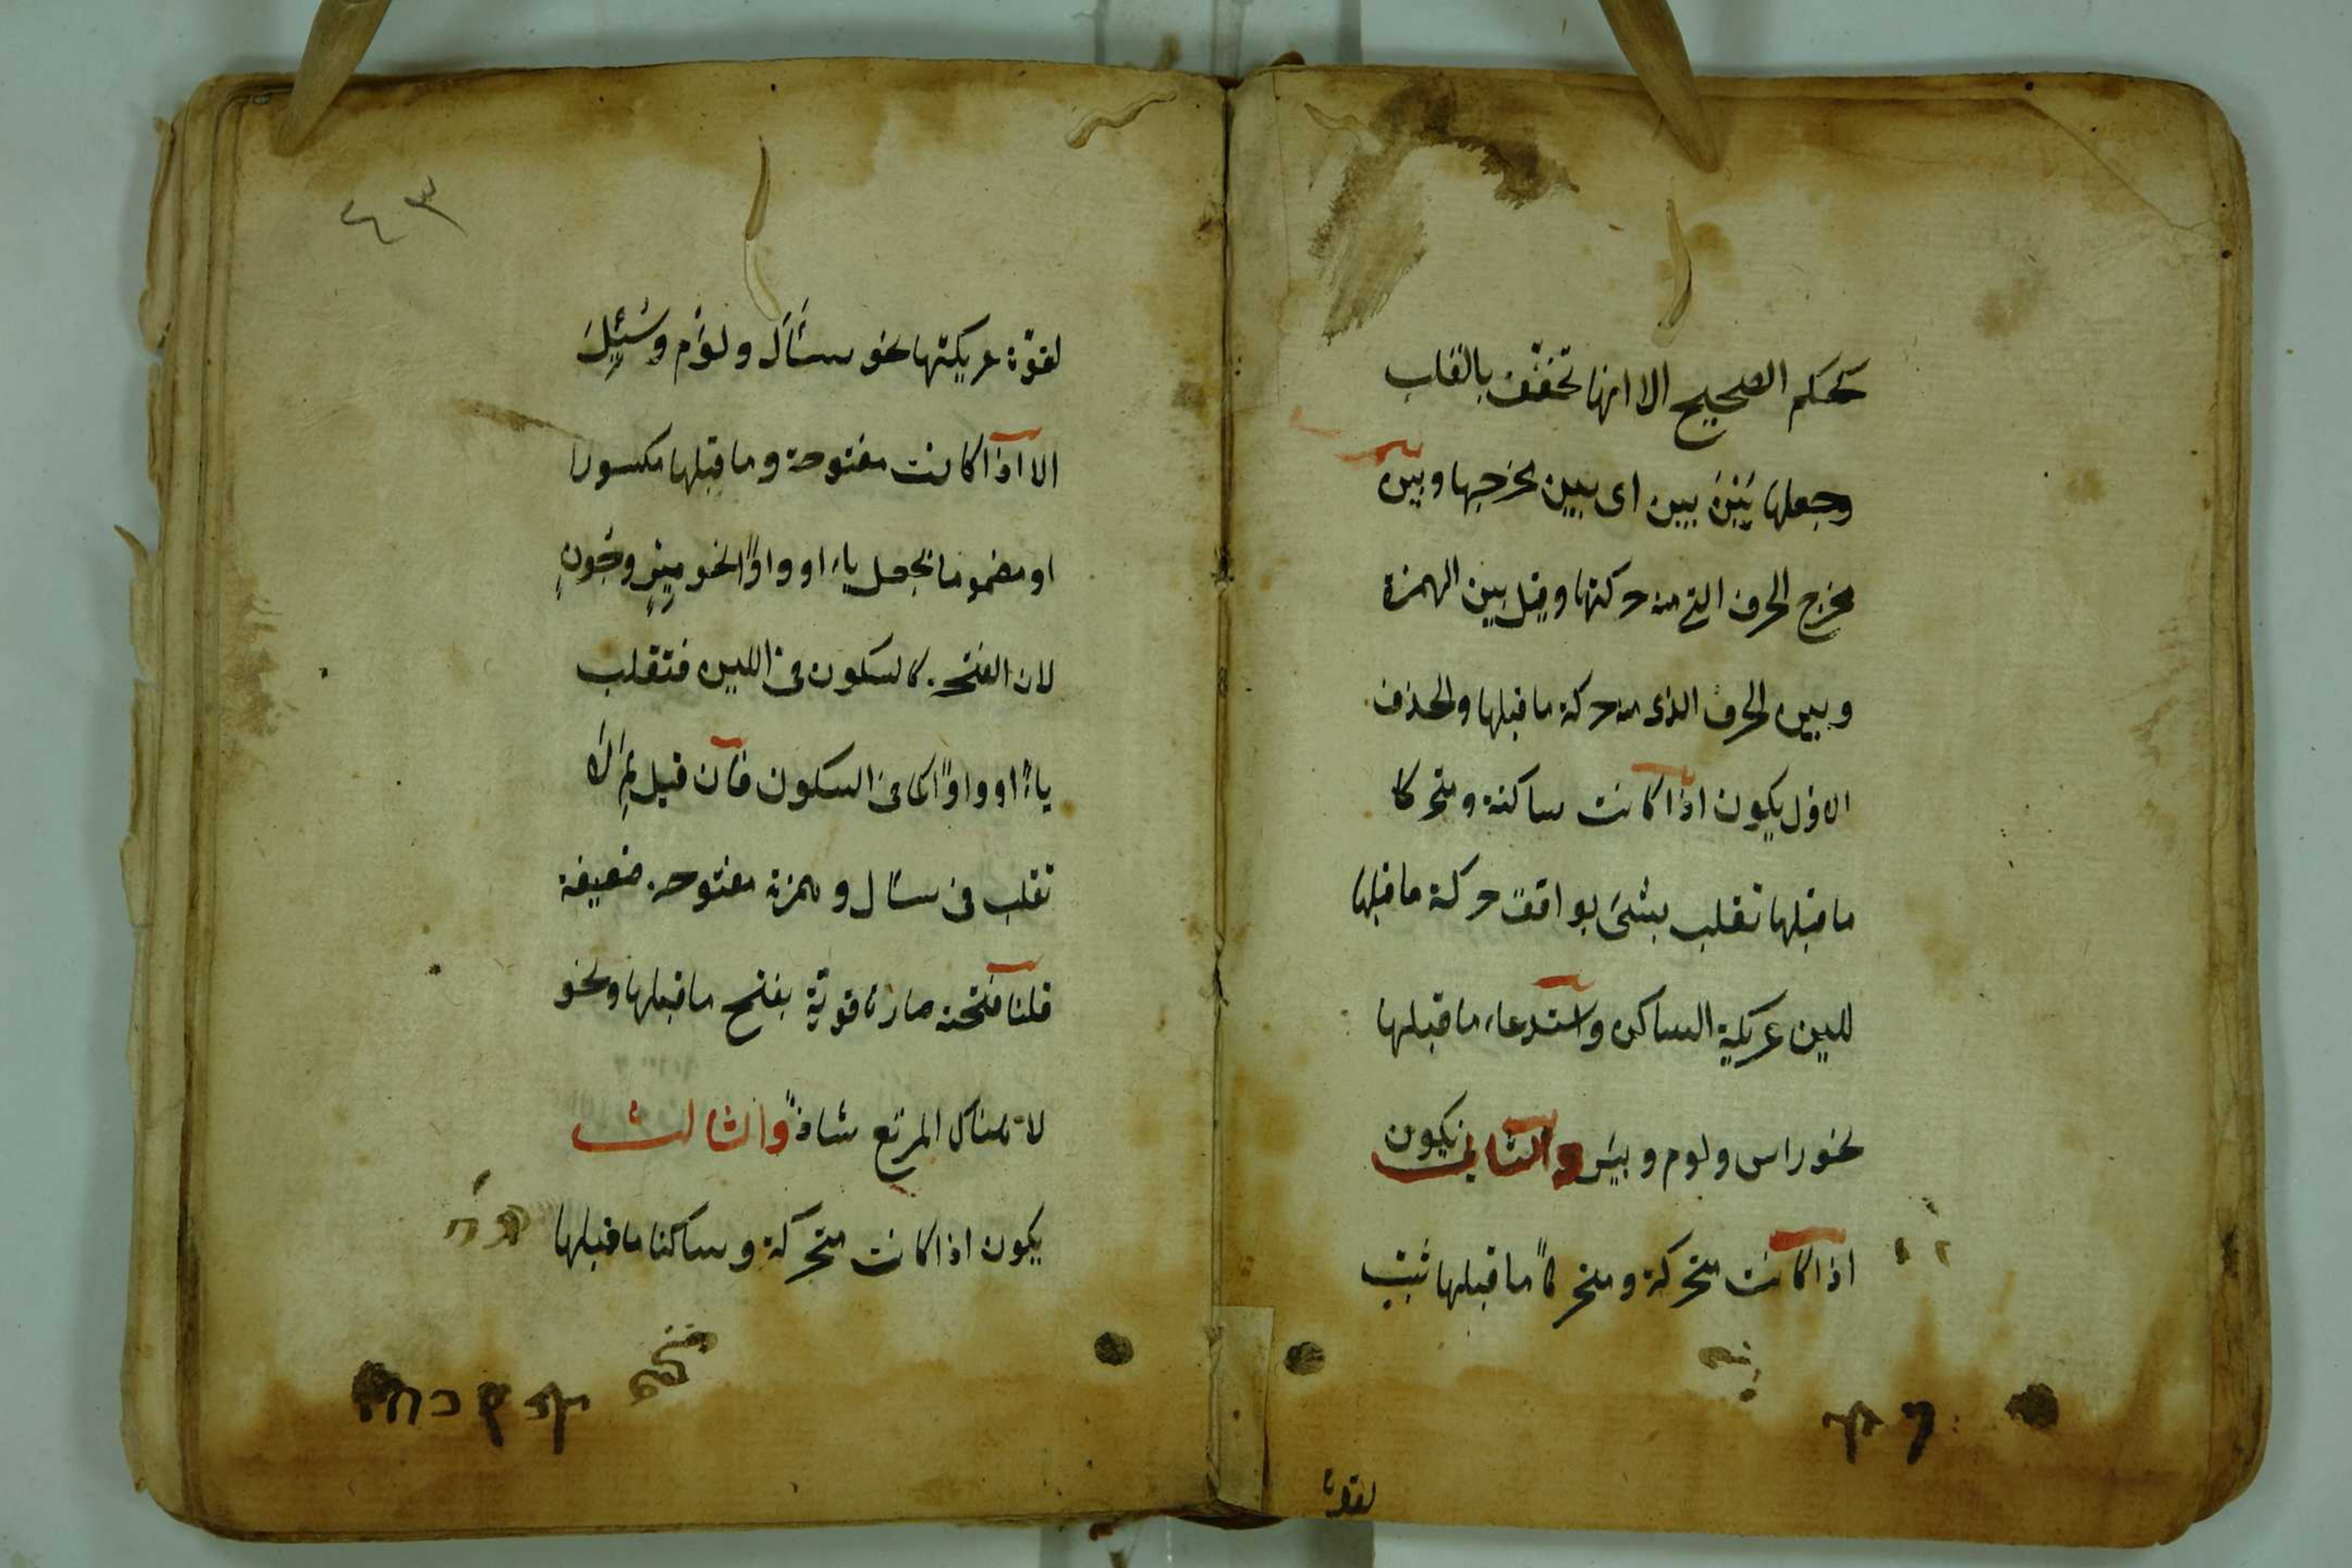 كحكم الصحيح الا انها تخفف بالقلب
وجعلها بَيْنَ بين اى بين مخرجها وبين
مخرج الحرف التي منه حركتها وقيل بين الهمزة
وبين الحرف الذى منه حركة ما قبلها والحذف
الاول يكون اذا كانت ساكنة ومتحركا
ما قبلها تقلب بشئ يوافق حركة ما قبلها
للين عريكة الساكن واستدعاء ما قبلها
نحو راس ولوم وبير والثاني يكون
اذا كانت متحركة ومتحركاً ما قبلها تثبت
لقوة
٤٣
لقوّة عريكتها نحو سَئَالَ ولوُم وسُئِلَ
الا اذا كانت مفتوحة وما قبلها مكسورا
او مضموما فتجعل ياء او واوًا نحو مِيَرٍ وجُوَنٍ
لان الفتحة كالسكون فى اللين فتقلب
ياءً او واوًا كما فى السكون فان قيل لِمَ لاَ
تقلب فى سئال وهمزته مفتوحة ضعيفة
قلنا فتحته صارت قويّة بفتح ما قبلها ونحو
لا هناك المرتع شاذً والثالث
يكون اذا كانت متحركة وساكنا ما قبلها